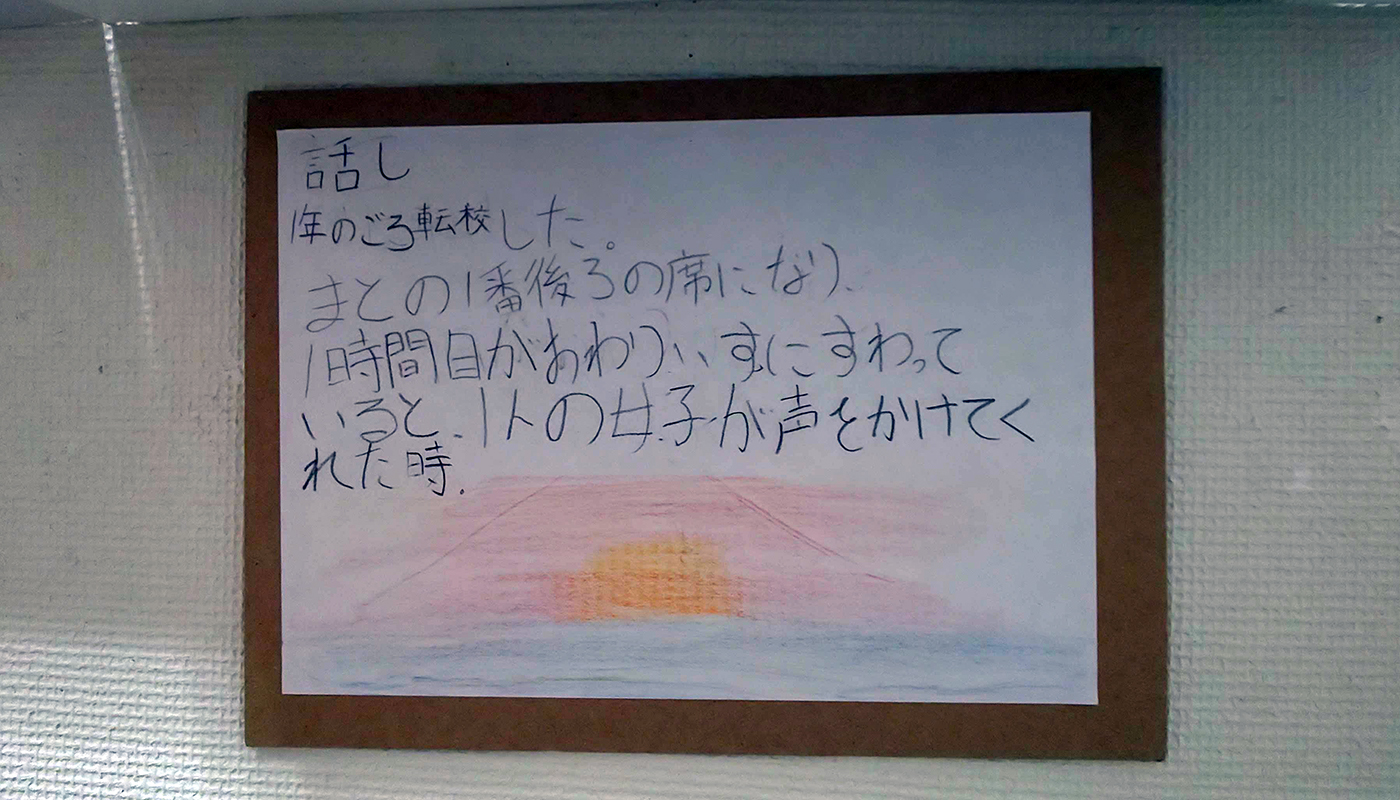 話し
1年のごろ転校した。
まとの1番後ろの席になり、
1時間目がおわり、いすにすわって
いると、1人の女子が声をかけてく
れた時.